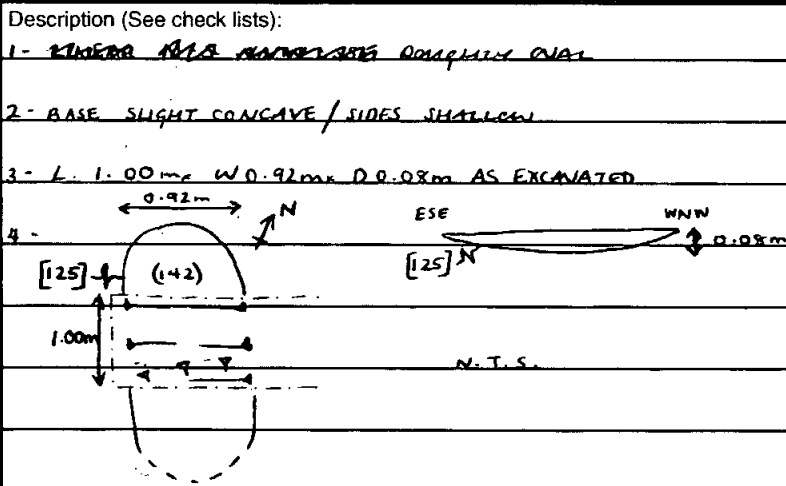 Description (See check lists):
1- LINEAR ROUGHLY OVAL
2- BASE SLIGHT CONCAVE / SIDES SHALLOW
3- L. 1.00m x W 0.92m x D 0.08m AS EXCAVATED
4-
0.92m
N
ESE
WNW
0.08m
[125]
(142)
[125]
1.00m
N.T.S.